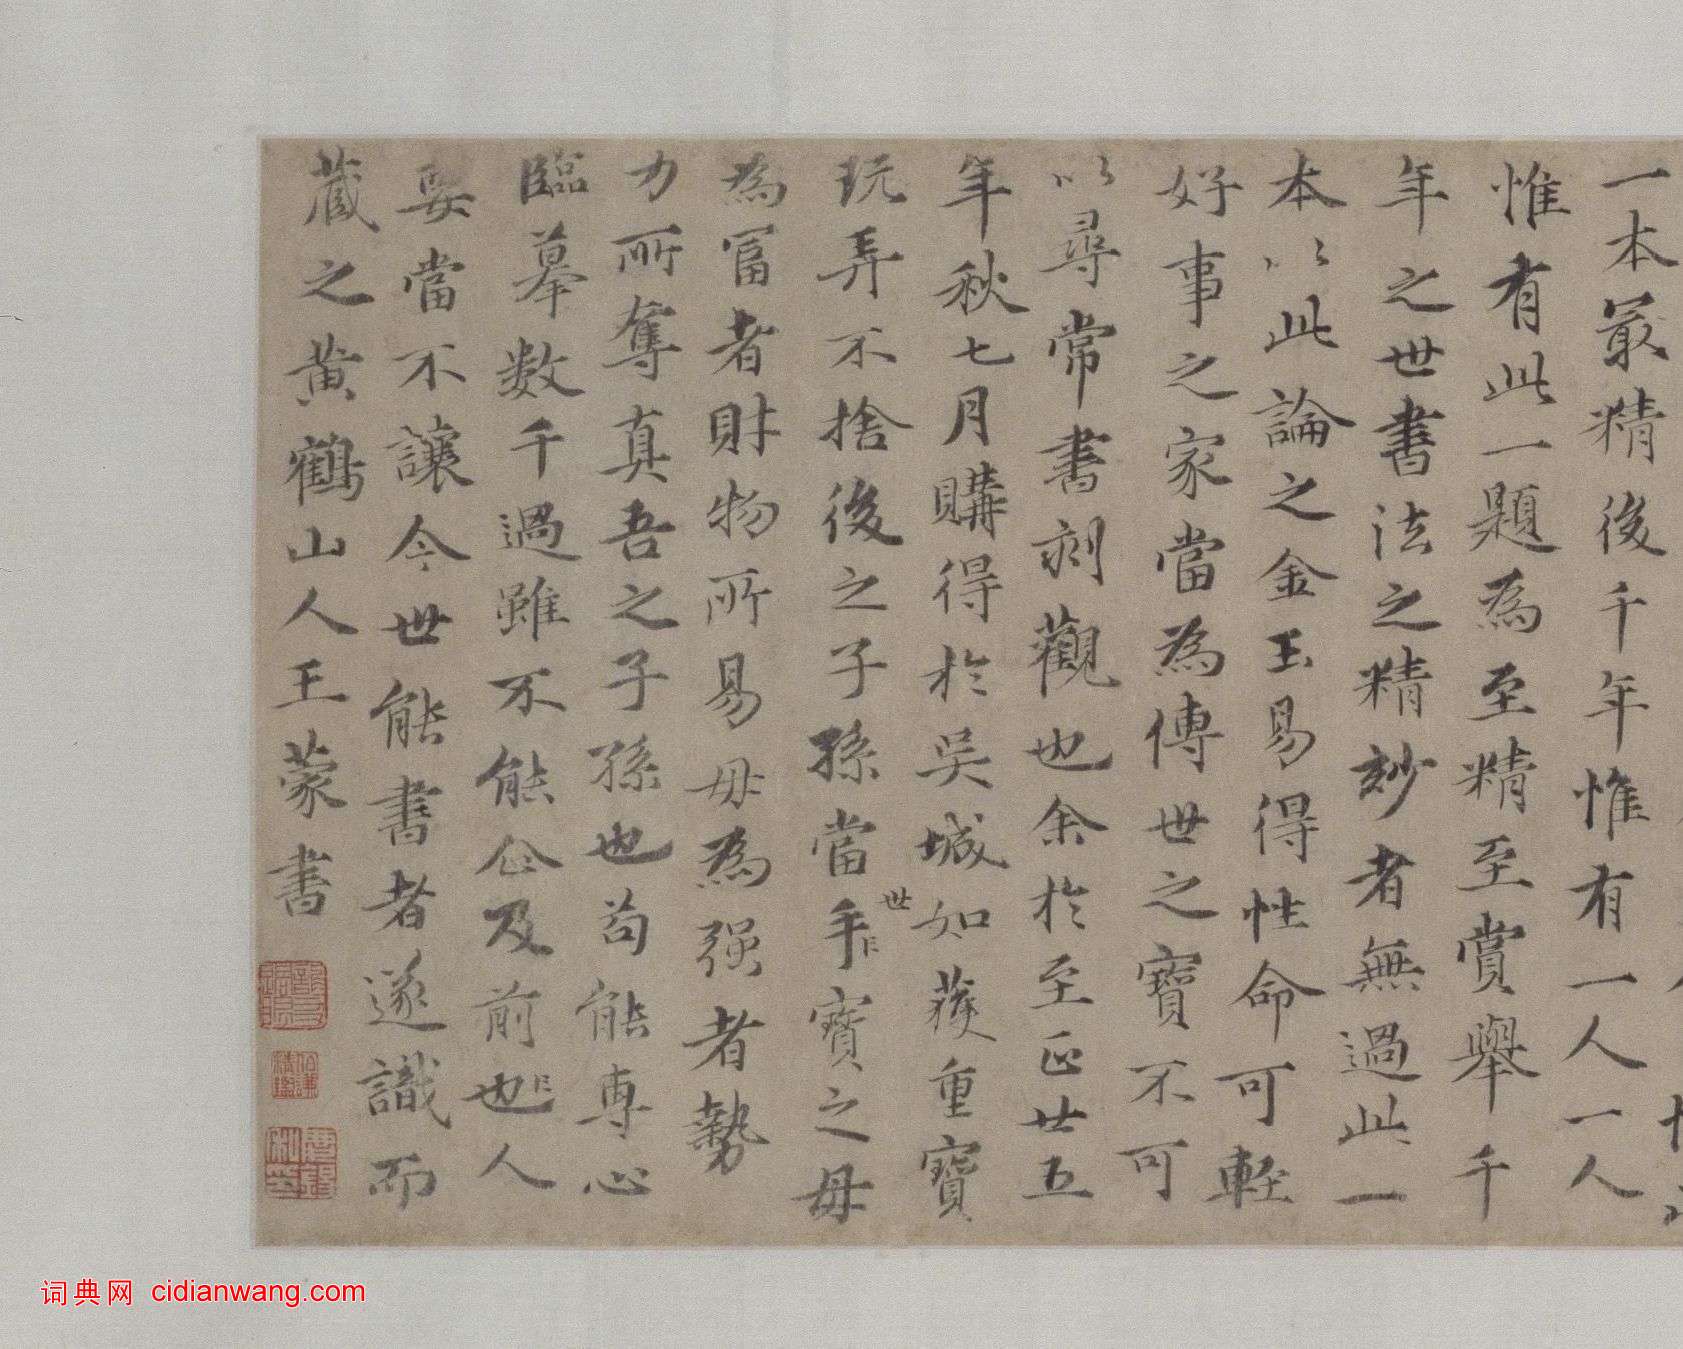 一本最精後千年惟有一人一人
惟有此一題為至精至賞舉千
年之世書法之精妙者無過此一
本以此論之金玉易得性命可輕
好事之家當為傳世之寶不可
以尋常書刻觀也余於至正廿五
年秋七月購得於吳城如獲重寶
玩弄不捨後之子孫當手世寶之毋
為富者財物所易毋為强者勢
力所奪真吾之子孫也苟能專心
臨摹數千過雖不能企及前也人
要當不讓今世能書者遂識而
藏之黄鶴山人王蒙書
词典网 cidianwang.com